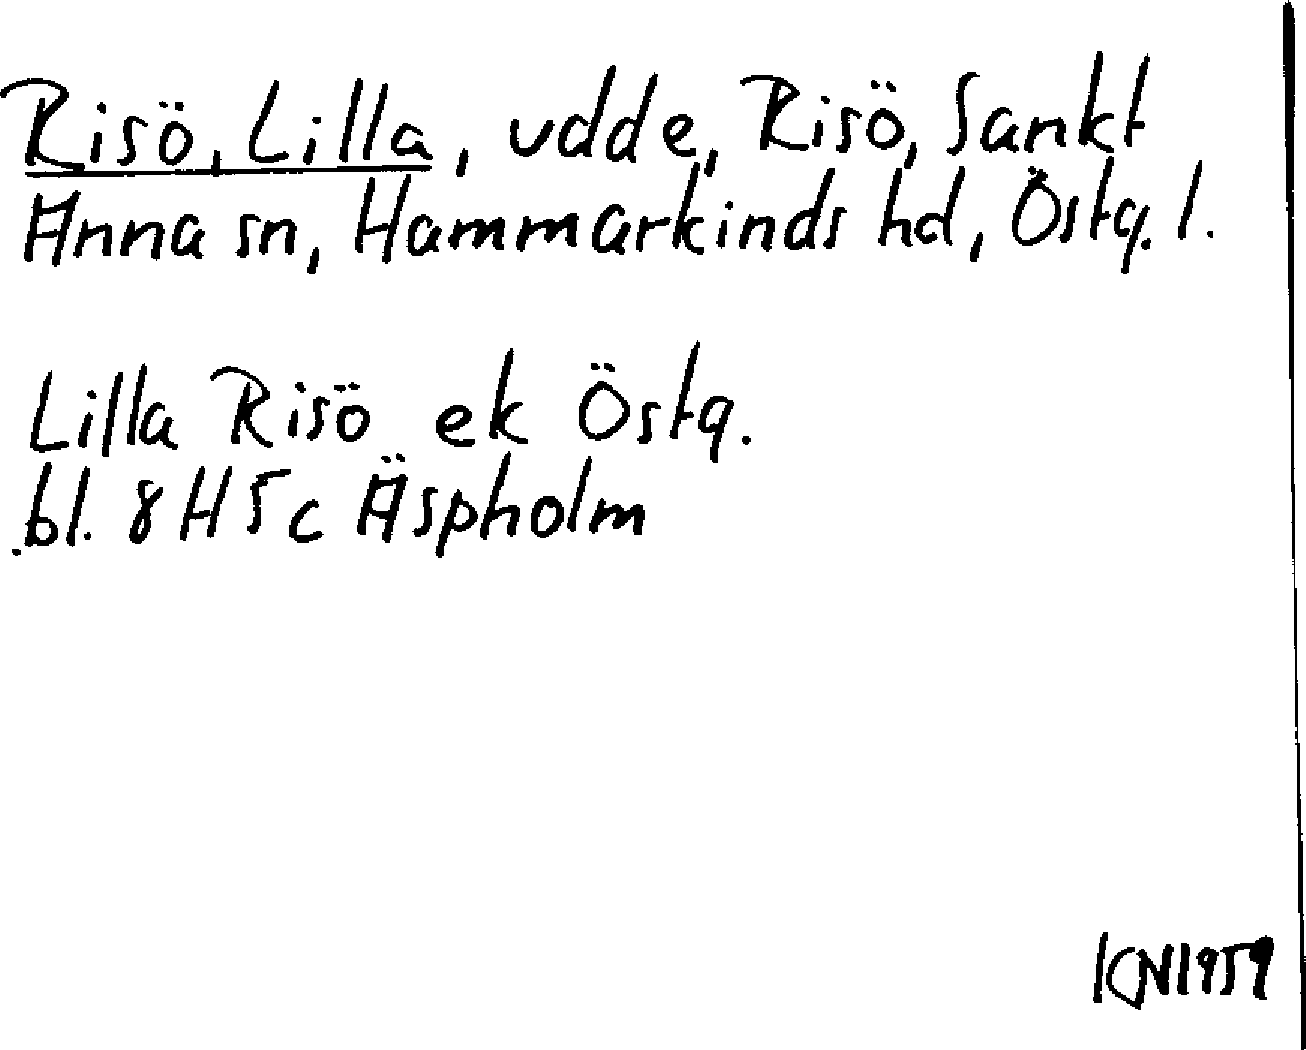 Risö, Lilla, udde, Risö, Sankt
Anna sn, Hammarkinds hd, Östg. l.
Lilla Risö ek Östg.
bl. 8H5c Äspholm
KN1959